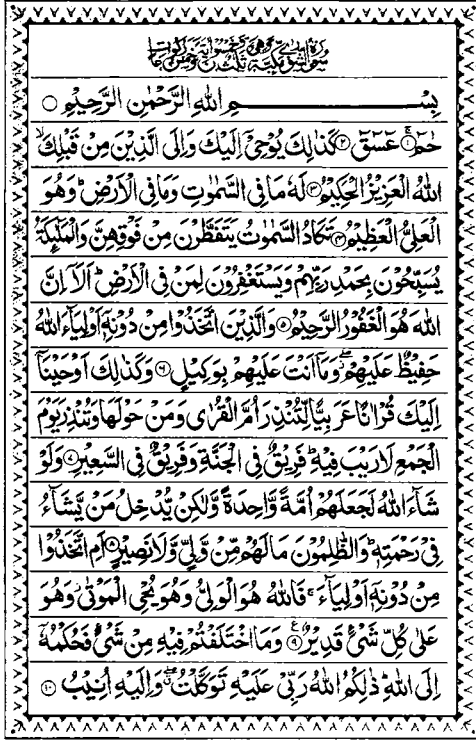 سورة الشورى مكية وهى ثلث وخمسون اية وخمس ركوعات
بِسْمِ اللهِ الرَّحْمٰنِ الرَّحِيْمِ ○
حٰمٓ ۝۱ عٓسٓقٓ ۝۲ كَذٰلِكَ يُوْحِيْٓ اِلَيْكَ وَاِلَى الَّذِيْنَ مِنْ قَبْلِكَ ۙ
اللهُ الْعَزِيْزُ الْحَكِيْمُ ۝۳ لَهٗ مَا فِي السَّمٰوٰتِ وَمَا فِي الْاَرْضِ ؕ وَهُوَ
الْعَلِيُّ الْعَظِيْمُ ۝۴ تَكَادُ السَّمٰوٰتُ يَتَفَطَّرْنَ مِنْ فَوْقِهِنَّ وَالْمَلٰٓئِكَةُ
يُسَبِّحُوْنَ بِحَمْدِ رَبِّهِمْ وَيَسْتَغْفِرُوْنَ لِمَنْ فِي الْاَرْضِ ؕ اَلَآ اِنَّ
اللهَ هُوَ الْغَفُوْرُ الرَّحِيْمُ ۝۵ وَالَّذِيْنَ اتَّخَذُوْا مِنْ دُوْنِهٖٓ اَوْلِيَآءَ اللهُ
حَفِيْظٌ عَلَيْهِمْ ۖ وَمَآ اَنْتَ عَلَيْهِمْ بِوَكِيْلٍ ۝۶ وَكَذٰلِكَ اَوْحَيْنَآ
اِلَيْكَ قُرْاٰنًا عَرَبِيًّا لِّتُنْذِرَ اُمَّ الْقُرٰى وَمَنْ حَوْلَهَا وَتُنْذِرَ يَوْمَ
الْجَمْعِ لَا رَيْبَ فِيْهِ ؕ فَرِيْقٌ فِي الْجَنَّةِ وَفَرِيْقٌ فِي السَّعِيْرِ ۝۷ وَلَوْ
شَآءَ اللهُ لَجَعَلَهُمْ اُمَّةً وَّاحِدَةً وَّلٰكِنْ يُّدْخِلُ مَنْ يَّشَآءُ
فِيْ رَحْمَتِهٖ ؕ وَالظّٰلِمُوْنَ مَا لَهُمْ مِّنْ وَّلِيٍّ وَّلَا نَصِيْرٍ ۝۸ اَمِ اتَّخَذُوْا
مِنْ دُوْنِهٖٓ اَوْلِيَآءَ ۚ فَاللهُ هُوَ الْوَلِيُّ وَهُوَ يُحْيِ الْمَوْتٰى ؗ وَهُوَ
عَلٰى كُلِّ شَيْءٍ قَدِيْرٌ ۝۹ وَمَا اخْتَلَفْتُمْ فِيْهِ مِنْ شَيْءٍ فَحُكْمُهٗٓ
اِلَى اللهِ ؕ ذٰلِكُمُ اللهُ رَبِّيْ عَلَيْهِ تَوَكَّلْتُ ۖ وَاِلَيْهِ اُنِيْبُ ۝۱۰